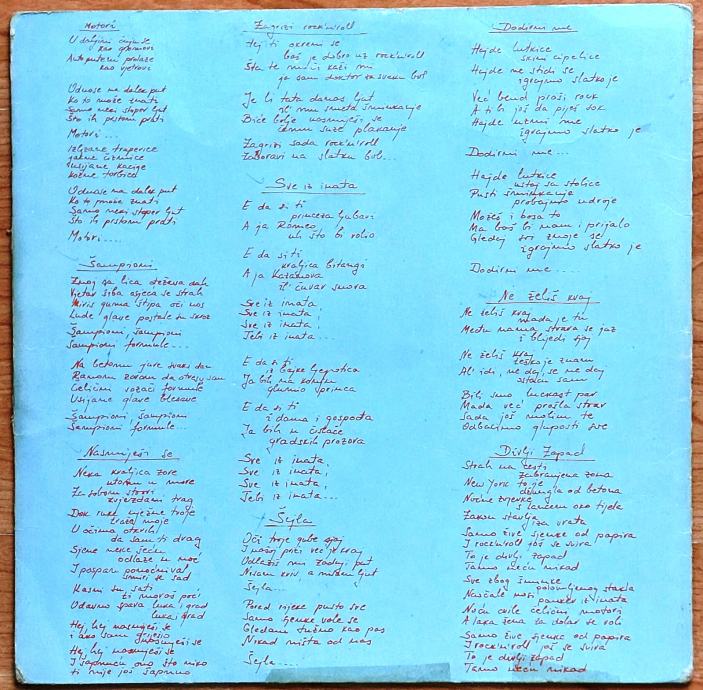 Motori
U daljini čuju se
kao gromovi
Autoputem prolaze
kao vjetrovi
Odnose na dalek put
Ko to može znati
Samo neki stoper ljut
Što ih prstom prati
Motori...
Izlizane traperice
jakne čizmice
kacige
kožne torbice
Odnose na dalek put
Ko to može znati
Samo neki stoper ljut
Što ih prstom prati
Motori....
Šampioni
Znoj sa lica dah
Vjetar šiba osjeća se strah
Miris guma štipa oči nos
Lude glave postale su skroz
Šampioni, šampioni
Šampioni formule...
Na betonu jure svaki dan
Ranom zorom da otresu san
Čelični vozači formule
Usijane glave blesave
Šampioni, šampioni
Šampioni formule...
Nasmiješi se
Neka kraljica zore
utone u more
Za tobom stvori
zvjezdani trag
Dok ruke nježne tvoje
traže moje
U očima otkrih
da sam ti drag
Sjene neke sjećn
odlaze u noć
I pospani ponoćni val
smiri se sad
Kasni su sati
ti moraš poć'
Odavno spava luka i grad
luka i grad
Hej, hej nasmiješi se
i ako sam griješio
nasmiješi se
Hej, hej nasmiješi se
I šapnuću ono što niko
ti nije još šapnuo
Zagrizi rock'n'roll
Hej ti okreni se
baš je dobro uz rock'n'roll
Šta te muči kaži mi
ja sam doktor za svaku bol
Je li tata danas ljut
il' mu smeta šminkanje
Biće bolje nasmiješi se
čemu suze plakanje
Zagrizi sada rock'n'roll
Zaboravi na slatku bol...
Sve iz inata
E da si ti
princeza ljubavi
A ja Romeo
uh što bi volio
E da si ti
kraljica bitangi
A ja Kazanova
il' čuvar snova
Sve iz inata,
Sve iz inata,
Sve iz inata,
Tebi iz inata...
E da si ti
iz bajke ljepotica
Ja bih na konju
glumio princa
E da si ti
i dama i gospođa
Ja bih u čistače
gradskih prozora
Sve iz inata,
Sve iz inata,
Sve iz inata,
Tebi iz inata...
Šejla
Oči tvoje gube sjaj
I našoj priči već je kraj
Odlaziš mi zadnji put
Nisam kriv, a mislim ljut
Šejla...
Pored rijeke pusto sve
Samo sjenke vole se
Gledam tužno kao pas
Nikad ništa od nas
Šejla...
Dodirni me
Hajde lutkice
skini cipelice
Hajde ne stidi se
igrajmo slatko je
Već bend praši rock
A ti bi još da piješ sok
Hajde uzmi me
igrajmo slatko je
Dodirni me...
Hajde lutkice
ustaj sa stolice
Pusti šminkanje
probajmo udvoje
Možeš i bosa to
Ma baš bi nam i prijalo
Gledaj svi znoje se
igrajmo slatko je
Dodirni me....
Ne želiš kraj
Ne želiš kraj
mada je tu
Među nama stvara se jaz
i blijedi sjaj
Ne želiš kraj
teško je znam
Al' idi, ne daj se ne daj
ostaću sam
Bili smo luckast par
Mada već prošla stvar
Sada još molim te
Odbacimo gluposti sve
Divlji Zapad
Strah na cesti
zabranjena zona
New York to je
džungla od betona
Noćne zvijerke
s lancem oko tijela
Zakon stavlja
iza vrata
Samo žive sjenke od papira
I rock'n'roll još se svira
To je divlji zapad
Tamo neću nikad
Sve zbog šminke
polomljenog stakla
Navčale nosi
panker iz inata
Noću cvile čelični motori
A laka žena za dolar se voli
Samo žive sjenke od papira
I rock'n'roll još se svira
To je divlji zapad
Tamo neću nikad